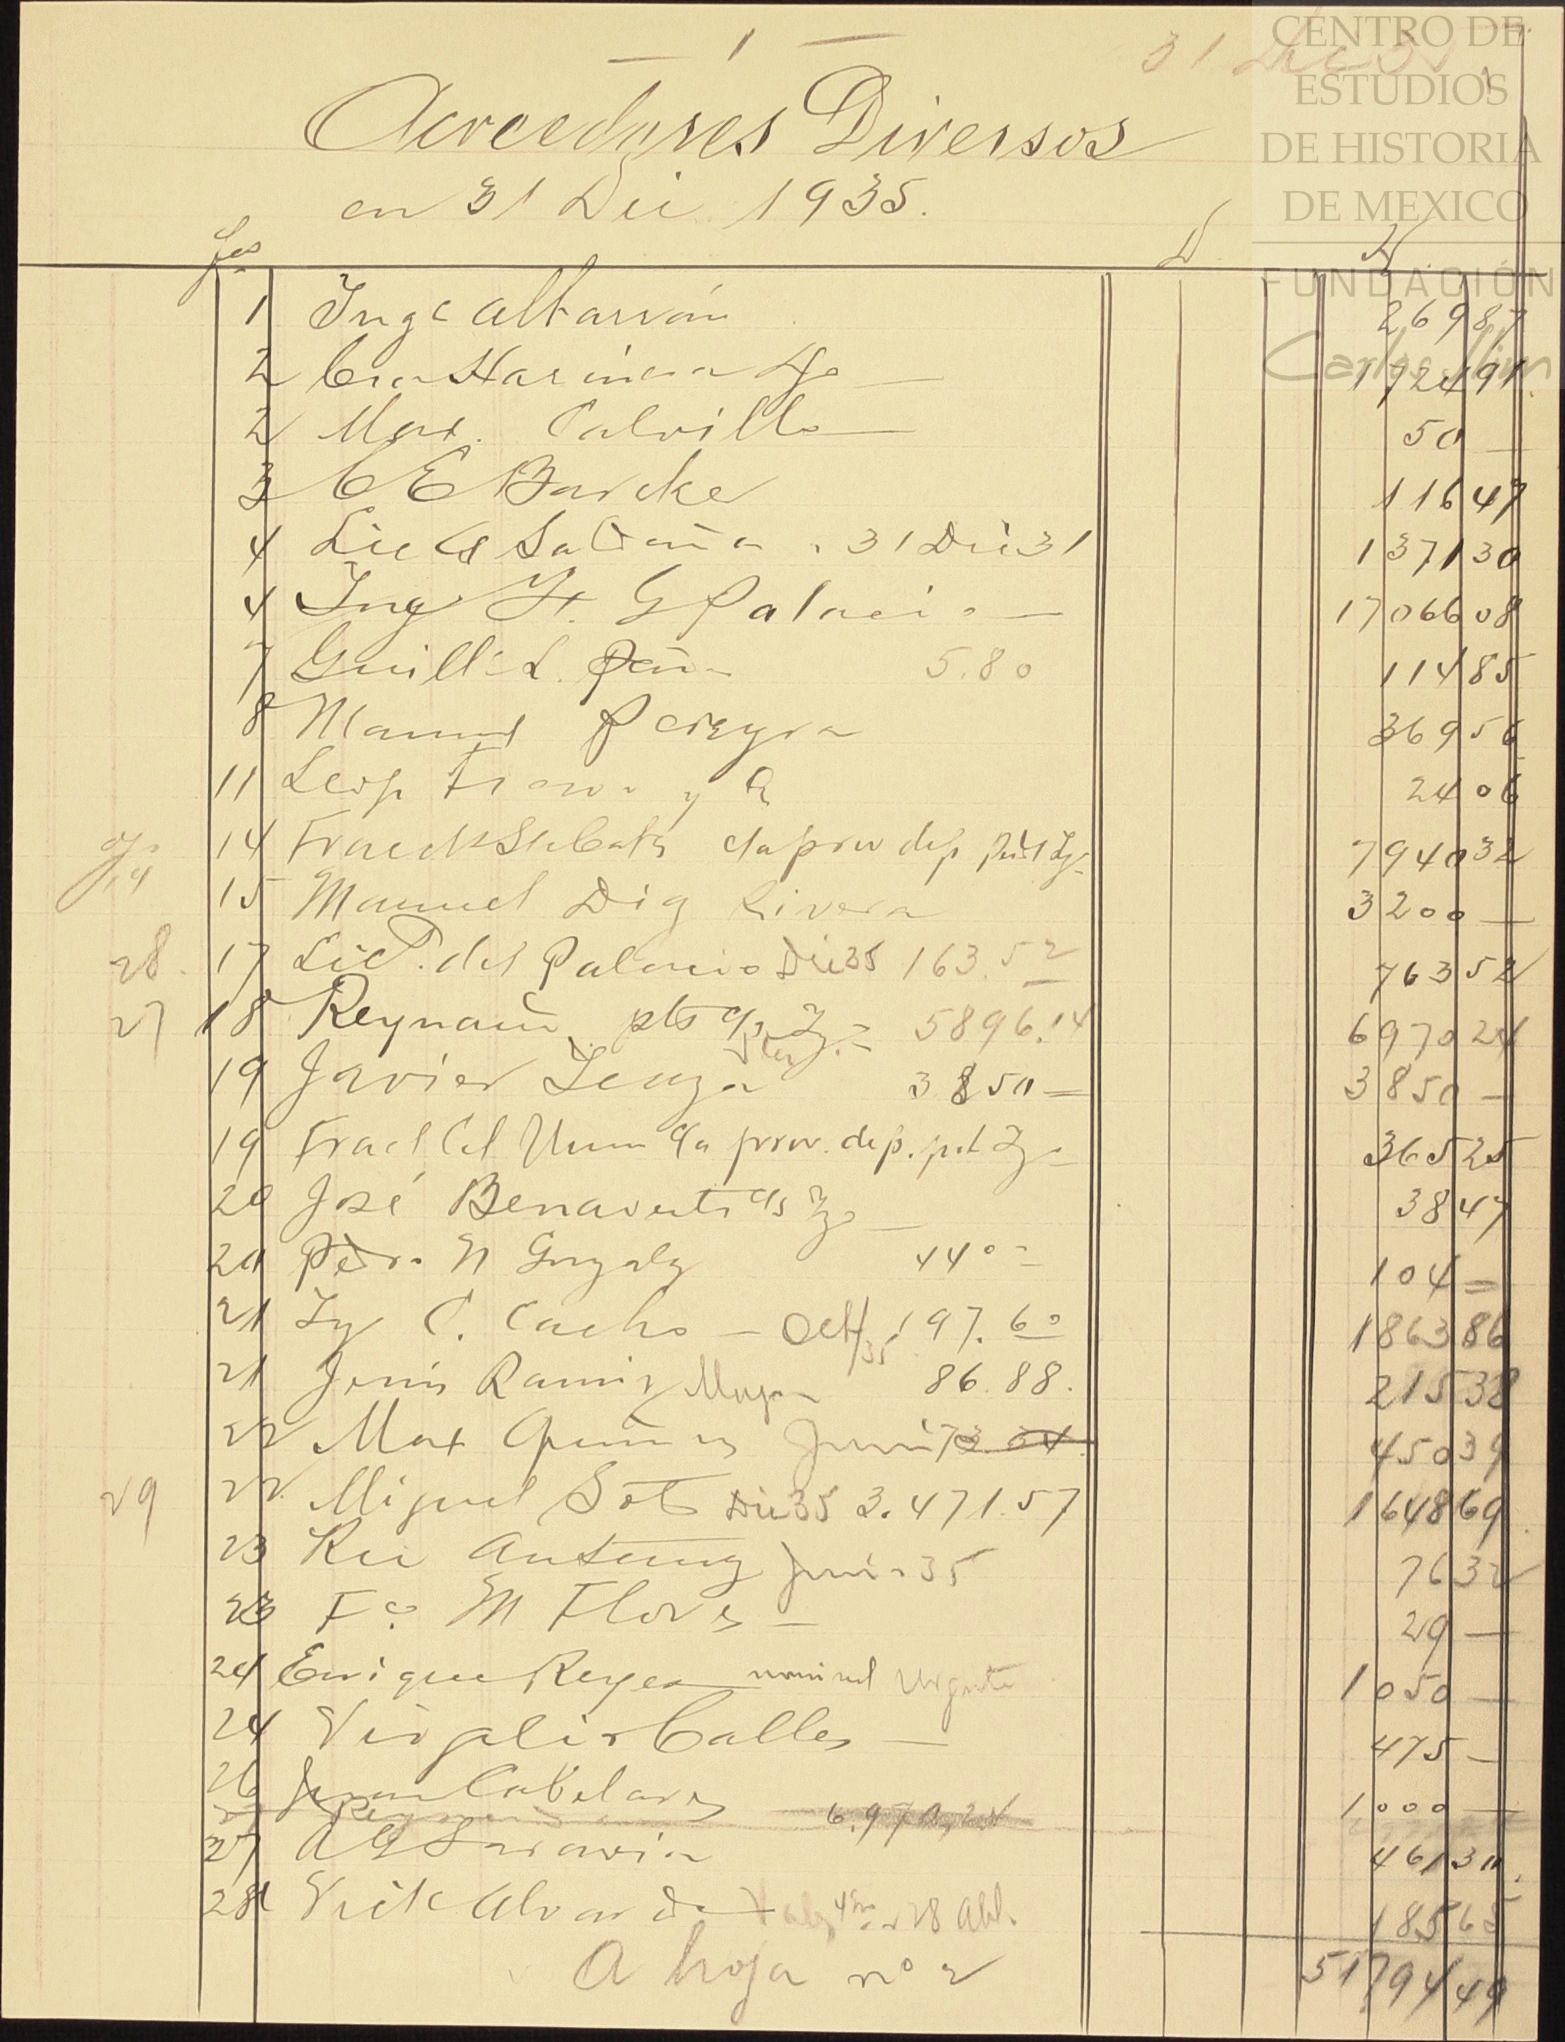 1
31 Dic 35
CENTRO DE
ESTUDIOS
DE HISTORIA
DE MEXICO
FUNDACIÓN
Carlos Slim
Acreedores Diversos
en 31 Dic 1935.
fos
1 Ing C Albarrán 269 87
2 Cia Harinera 1724 91
2 Max. Calvillo 50 —
3 C E Barcke 116 47
4 Lic G Saldaña 31 Dic 31 1371 30
4 Ing F. G Palacio — 17066 08
7 Guill L. Peña 5.80 114 85
8 Manuel Pereyra 369 56
11 Leop 24 06
14 Fracc cta prov dep 7940 32
15 Manuel Dig Rivera 3200 —
28. 17 Lic P. del Palacio Dic 35 163.52 763 52
27 18 Reynaud pts 5896.14 6970 24
19 Javier Icaza 3850 = 3850 —
19 Fracc Cta prov. dep. 365 25
20 José Benavente 38 47
20 Pedro N Gonzalz 44 00 104 =
21 C. Cacho — Oct/35 197.60 1863 86
21 Jesús Ramirz Mayo 86.88. 215 38
22 Max Junio 73.34 450 39
29 22 Miguel Soto Dic 35 3.471.57 1648 69
23 Junio 35 76 32
23 Fco M Flores — 29 —
24 Enrique Reyes Urgente 1050 —
24 Virgilio Calles — 475 —
26 Juan 1000 —
6.970,24
27 A G Saravia 461 30
28 Vict Alvarado 28 Abl. 185 65
A hoja no 2 51794 49